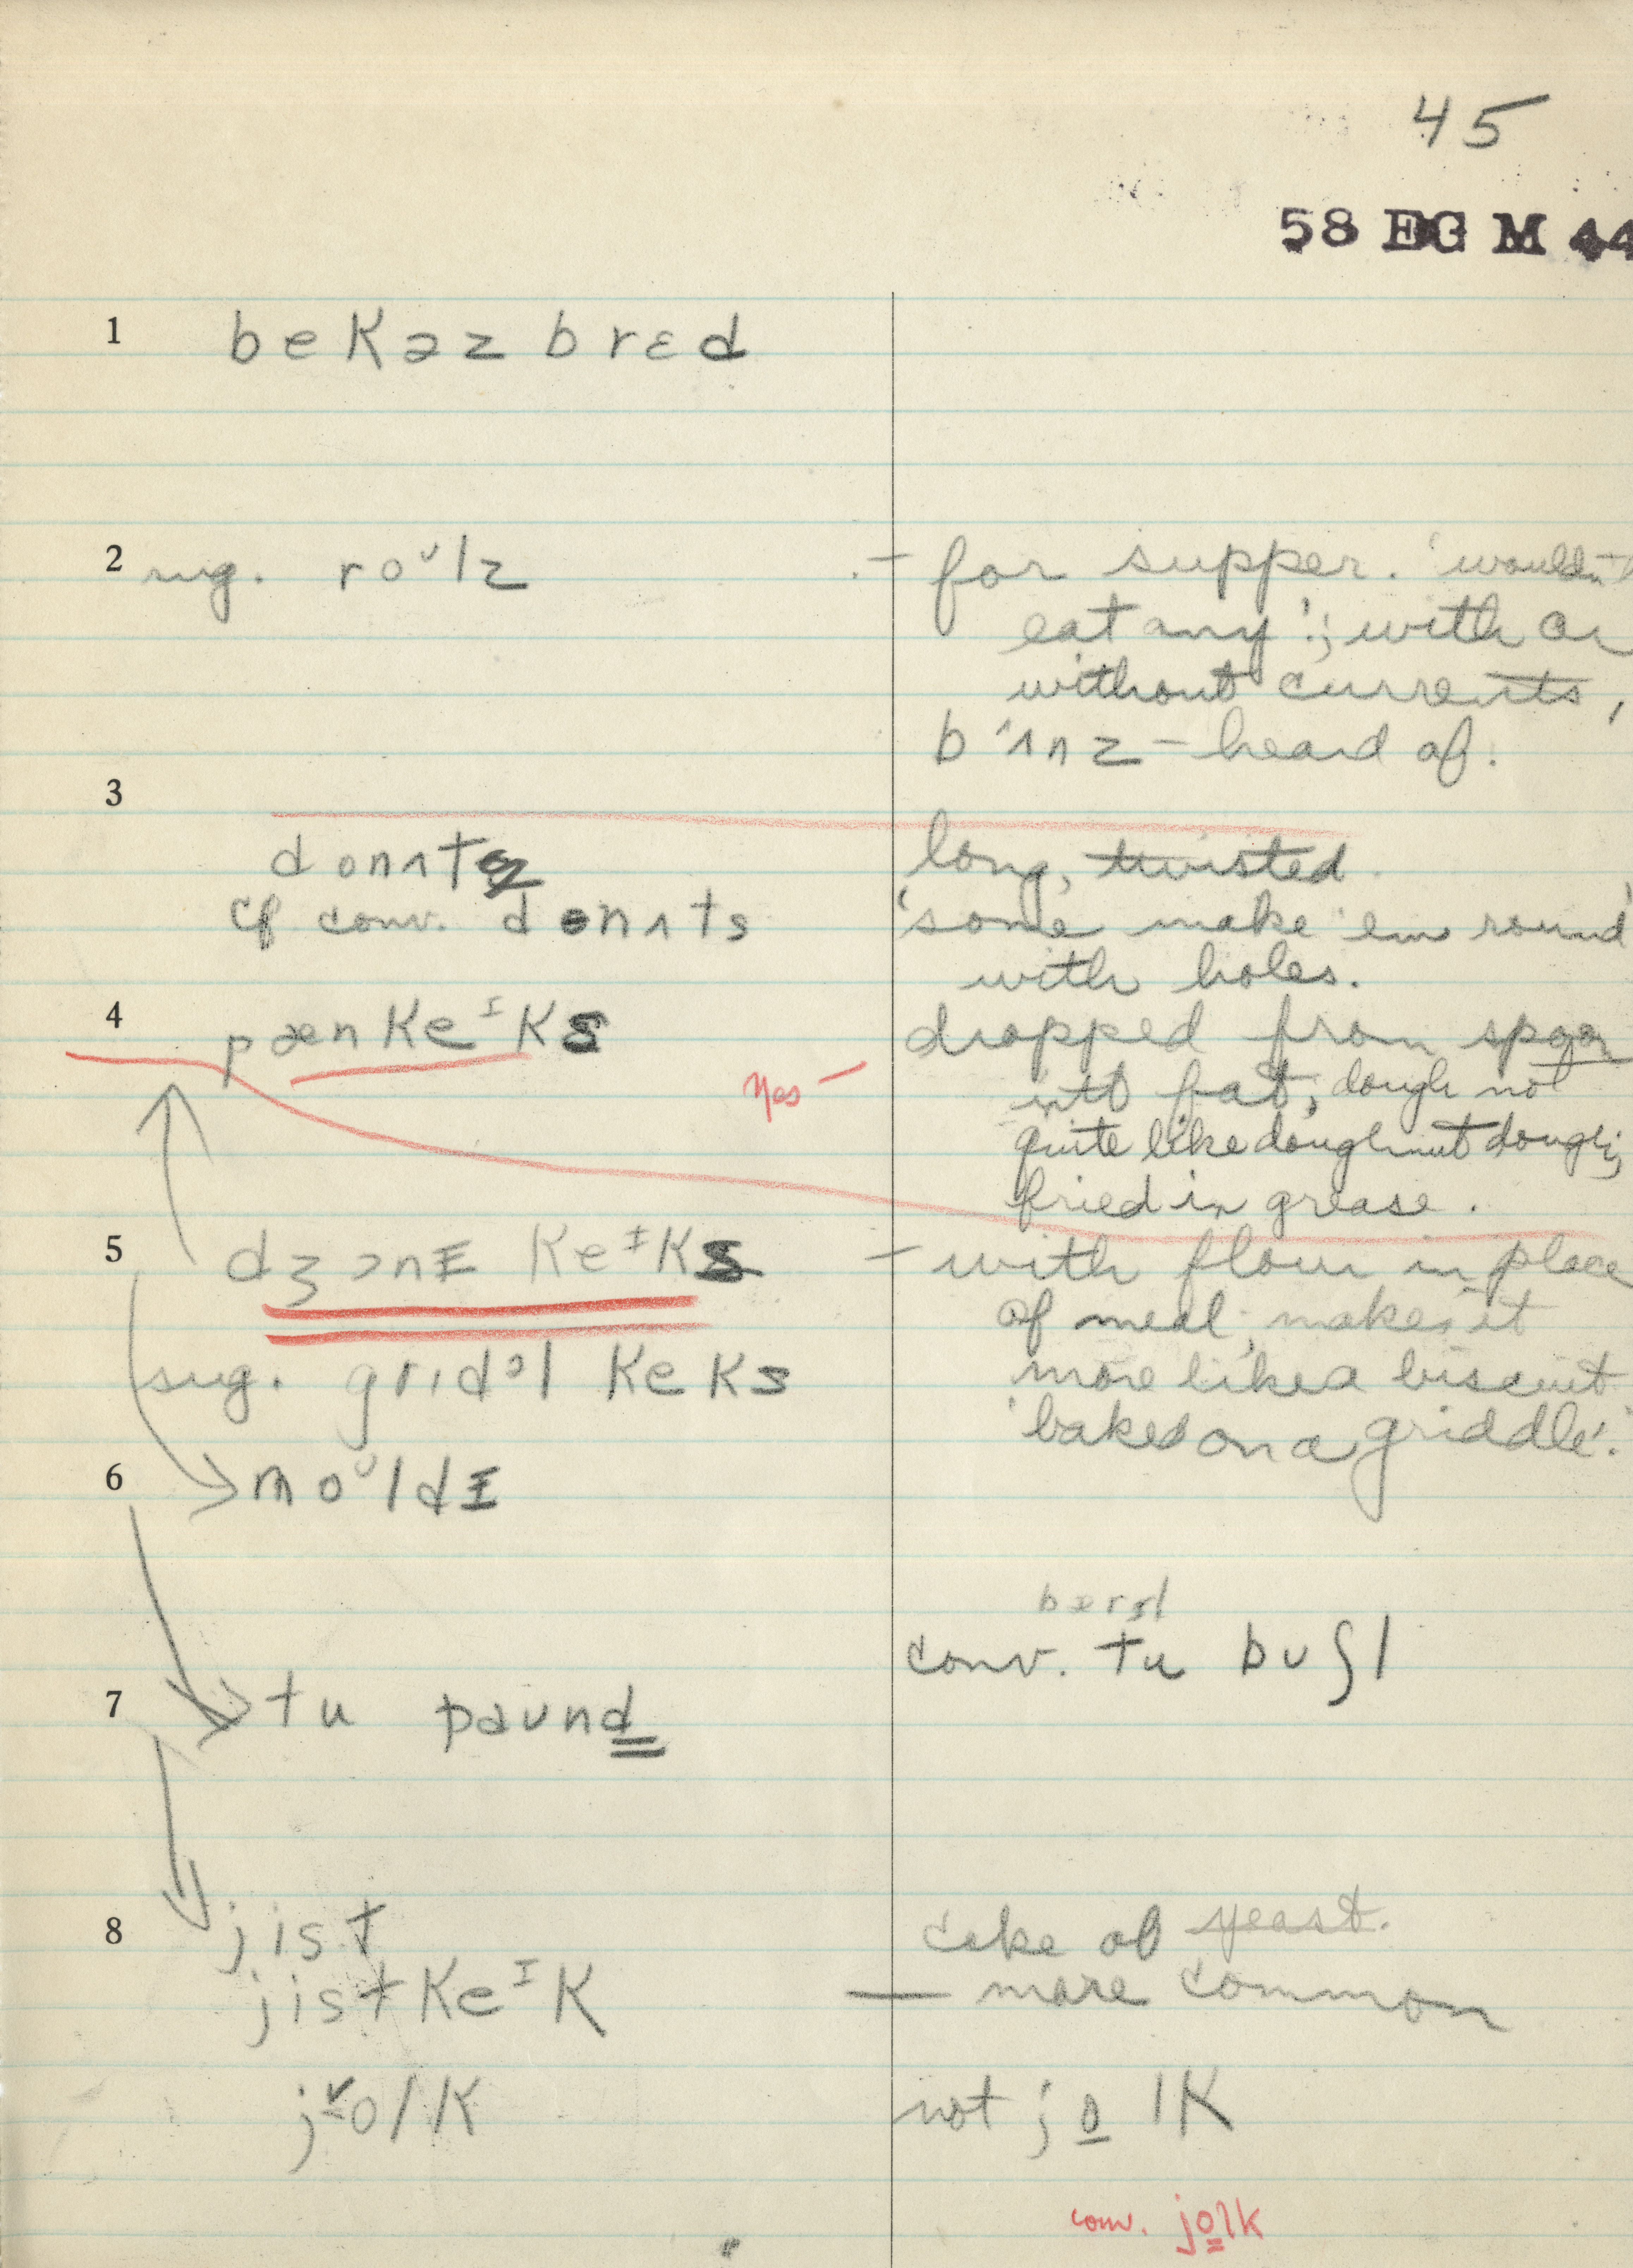 45
58 EG M 44
1 bekəz brɛd
2 sug. roᶷlz — for supper. 'wouldn't
eat any'; with or
without currents,
b ʌnz – heard of.
3
donʌts long, twisted.
cf conv. donʌts 'some make 'em round'
with holes.
4 pænkeᴵks dropped from spoon
Yes — into fat; dough not
quite like doughnut dough;
fried in grease.
5 dʒɔnɪ keᴵks — with flour in place
of meal; makes it
sug. grɪdᵊl keks more like a biscuit
'baked on a griddle'.
6 moᶷldɪ
conv. tu buʃl
7 tu paund
8 jist cake of yeast.
jist keᴵk — more common
jolk not jolk
conv. jolk